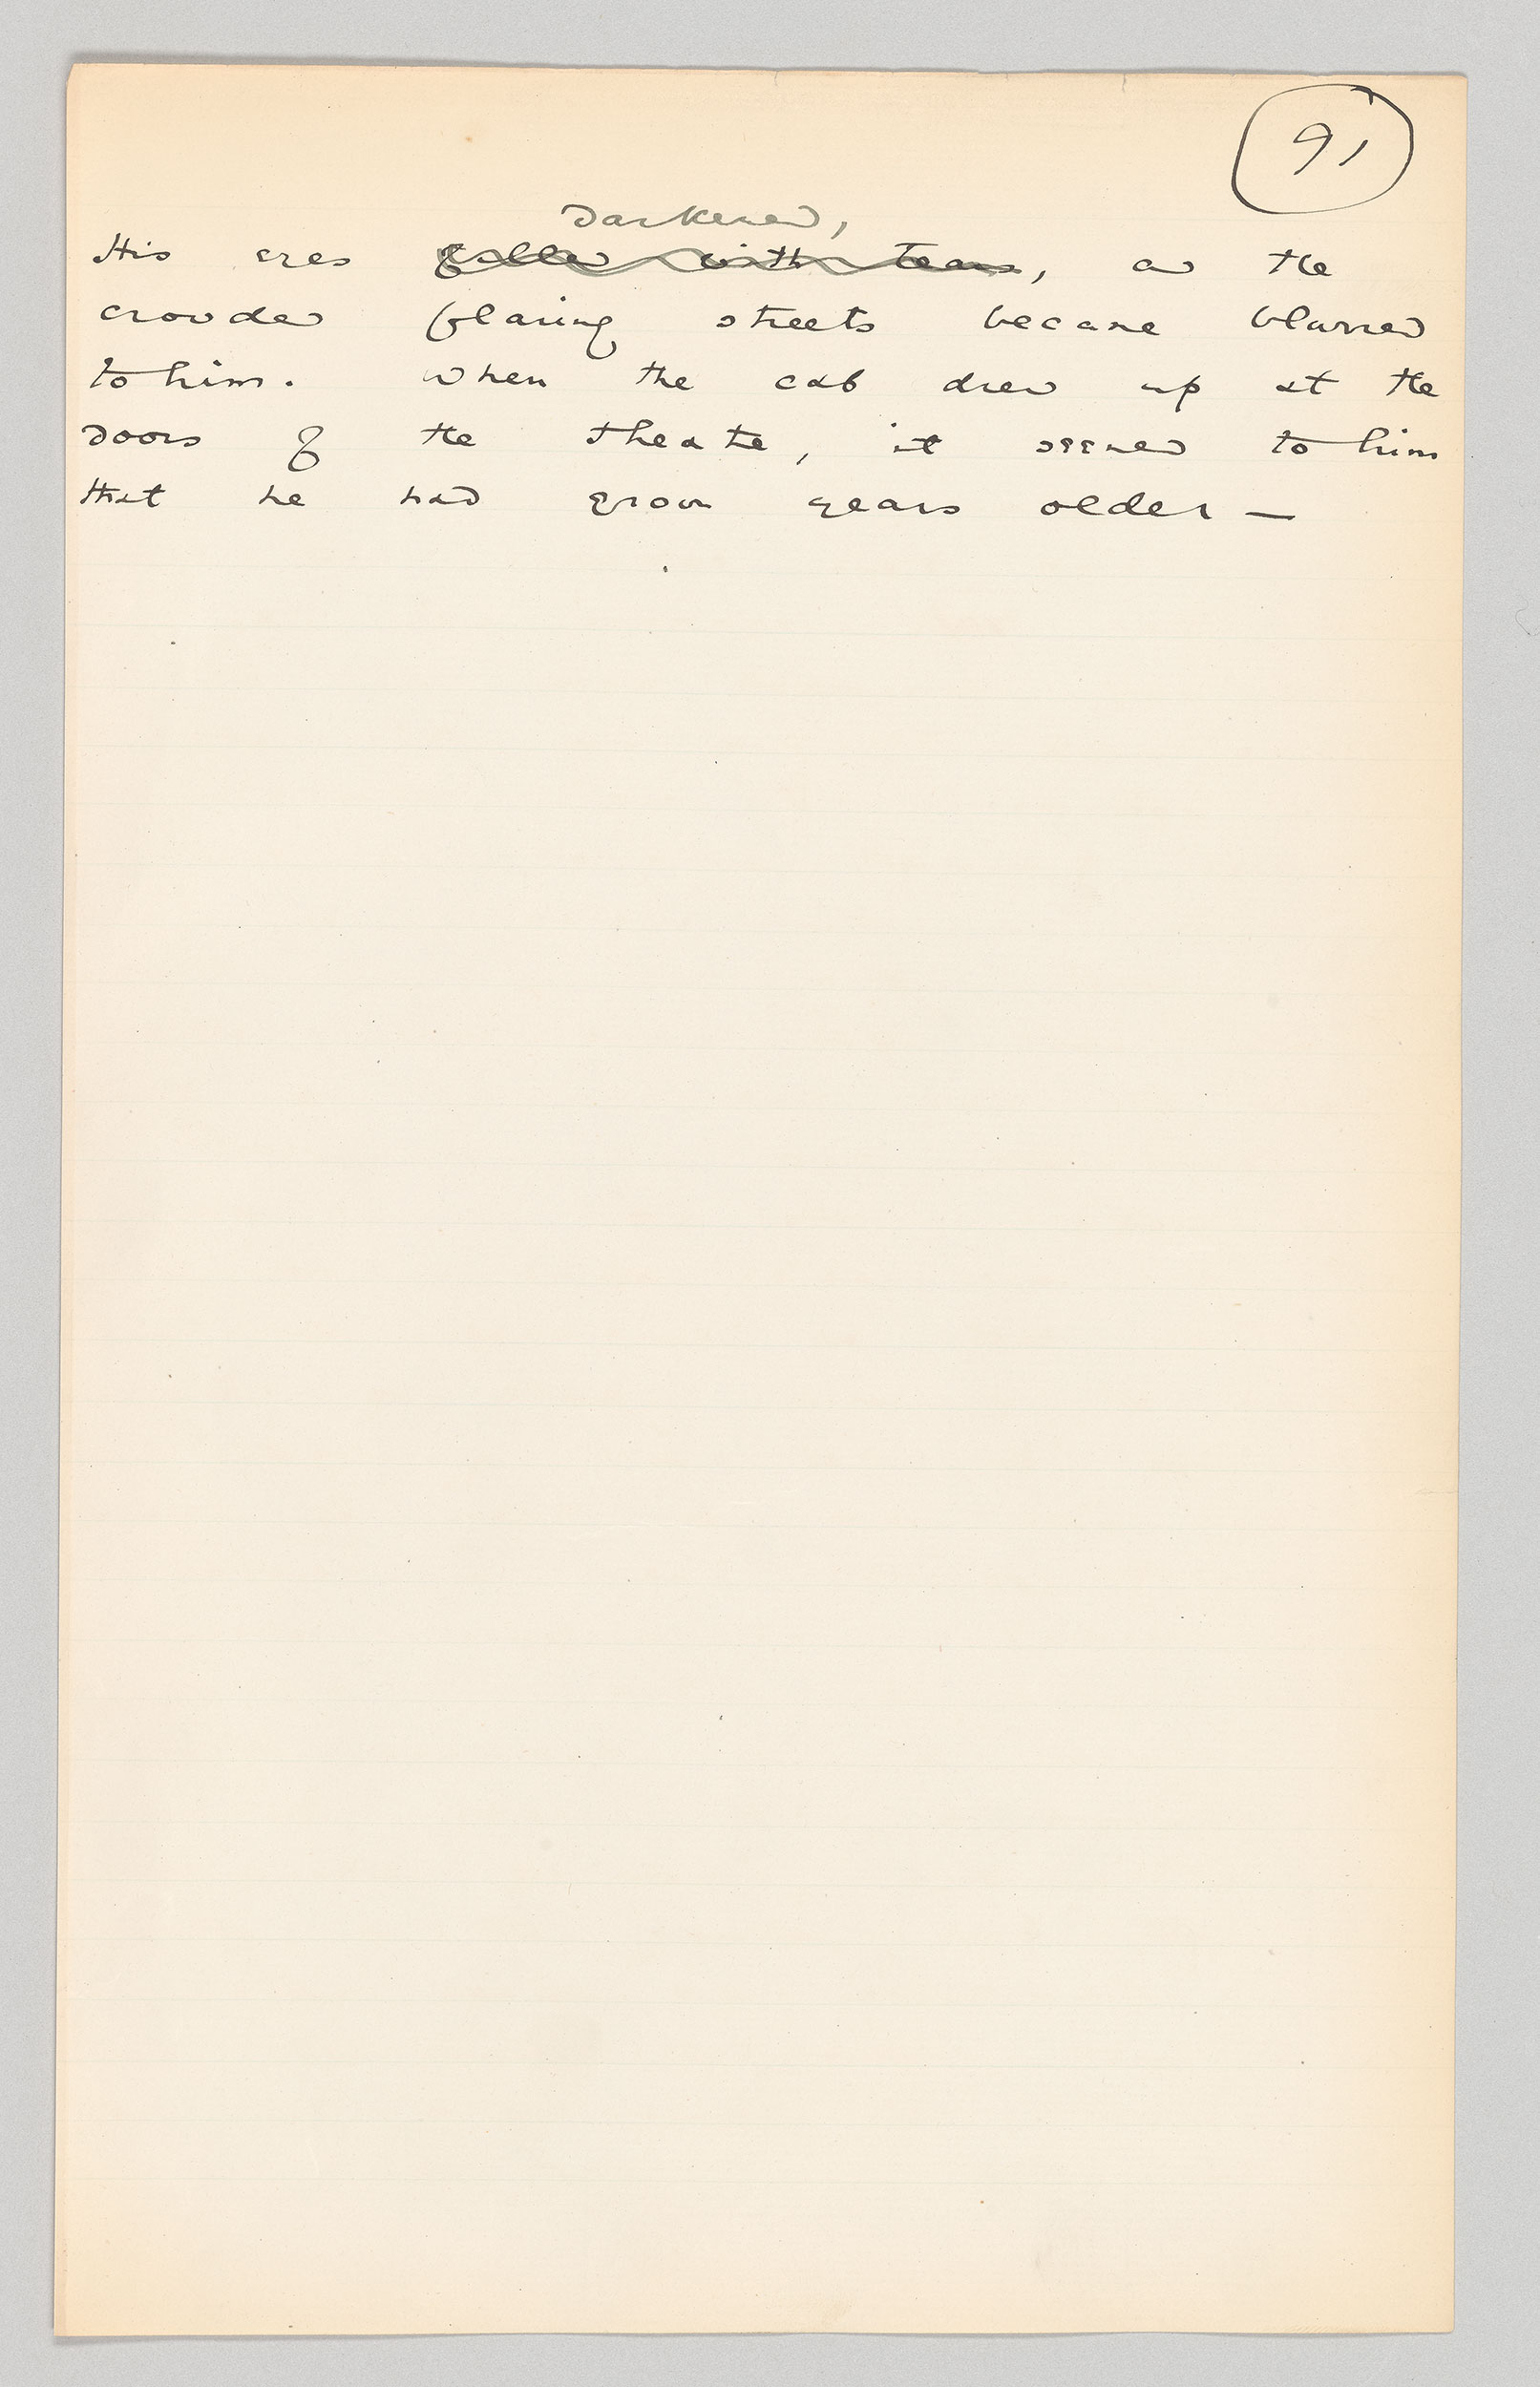 91
darkened,
His eyes filled with tears, and the
crowded flaring streets became blurred
to him. When the cab drew up at the
doors of the theatre, it seemed to him
that he had grown years older —